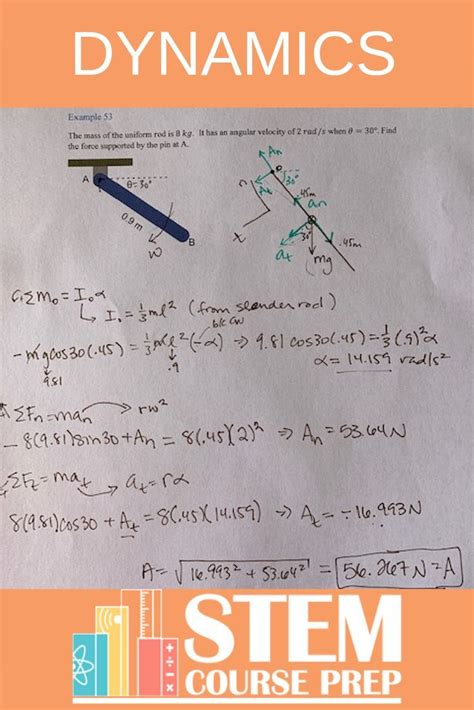 DYNAMICS
Example 53
The mass of the uniform rod is 8 kg. It has an angular velocity of 2 rad/s when θ = 30°. Find
the force supported by the pin at A.
A
θ=30°
0.9m
ω
B
An
At
30°
n
.45m
an
x
at
30°
mg
.45m
ΣMo = Ioα
Io = 1/3 ml² (from slender rod)
b/c CW
-mgcos30(.45) = 1/3 ml²(-α) ⇒ 9.81 cos30(.45) = 1/3 (.9)²α
9.81
.9
α = 14.159 rad/s²
ΣFn = man → rω²
-8(9.81)sin30 + An = 8(.45)(2)² ⇒ An = 53.64N
ΣFt = mat → at = rα
8(9.81)cos30 + At = 8(.45)(14.159) ⇒ At = -16.993N
A = √16.993² + 53.64² = 56.267N = A
STEM
COURSE PREP